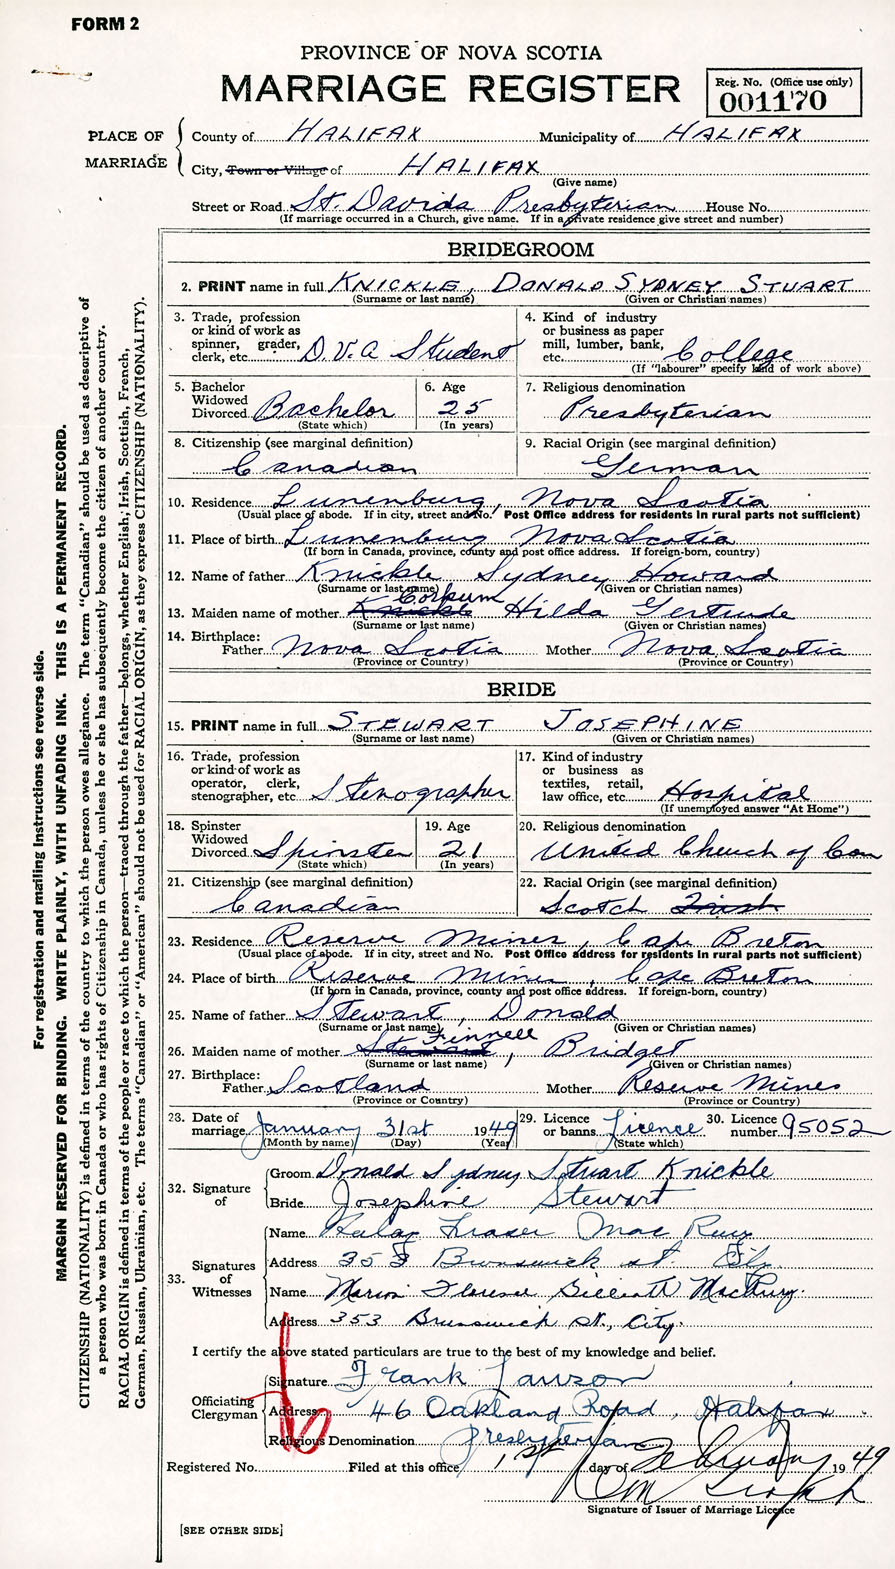 FORM 2
PROVINCE OF NOVA SCOTIA
MARRIAGE REGISTER
Reg. No. (Office use only)
001170
PLACE OF MARRIAGE
County of HALIFAX Municipality of HALIFAX
City, Town or Village of HALIFAX
(Give name)
Street or Road St. Davids Presbyterian House No.
(If marriage occurred in a Church, give name. If in a private residence give street and number)
BRIDEGROOM
2. PRINT name in full KNICKLE, DONALD SYDNEY STUART
(Surname or last name) (Given or Christian names)
3. Trade, profession or kind of work as spinner, grader, clerk, etc. D.V.A Student
4. Kind of industry or business as paper mill, lumber, bank, etc. College
(If "labourer" specify kind of work above)
5. Bachelor Widowed Divorced Bachelor
(State which)
6. Age 25
(In years)
7. Religious denomination
Presbyterian
8. Citizenship (see marginal definition)
Canadian
9. Racial Origin (see marginal definition)
German
10. Residence Lunenburg, Nova Scotia
(Usual place of abode. If in city, street and No. Post Office address for residents in rural parts not sufficient)
11. Place of birth Lunenburg Nova Scotia
(If born in Canada, province, county and post office address. If foreign-born, country)
12. Name of father Knickle Sydney Howard
(Surname or last name) (Given or Christian names)
Corkum
13. Maiden name of mother Knickle Hilda Gertrude
(Surname or last name) (Given or Christian names)
14. Birthplace:
Father Nova Scotia Mother Nova Scotia
(Province or Country) (Province or Country)
BRIDE
15. PRINT name in full STEWART JOSEPHINE
(Surname or last name) (Given or Christian names)
16. Trade, profession or kind of work as operator, clerk, stenographer, etc Stenographer
17. Kind of industry or business as textiles, retail, law office, etc. Hospital
(If unemployed answer "At Home")
18. Spinster Widowed Divorced Spinster
(State which)
19. Age 21
(In years)
20. Religious denomination
United Church of Can
21. Citizenship (see marginal definition)
Canadian
22. Racial Origin (see marginal definition)
Scotch Irish
23. Residence Reserve Mines, Cape Breton
(Usual place of abode. If in city, street and No. Post Office address for residents in rural parts not sufficient)
24. Place of birth Reserve Mines, Cape Breton
(If born in Canada, province, county and post office address. If foreign-born, country)
25. Name of father Stewart, Donald
(Surname or last name) (Given or Christian names)
Finnell
26. Maiden name of mother Stewart, Bridget
(Surname or last name) (Given or Christian names)
27. Birthplace:
Father Scotland Mother Reserve Mines
(Province or Country) (Province or Country)
28. Date of marriage January 31st 1949
(Month by name) (Day) (Year)
29. Licence or banns Licence
(State which)
30. Licence number 95052
32. Signature of
Groom Donald Sydney Stuart Knickle
Bride Josephine Stewart
33. Signatures of Witnesses
Name Fraser Mac
Address 353 Brunswick st.
Name Marion Florence
Address 353 Brunswick St., City.
I certify the above stated particulars are true to the best of my knowledge and belief.
Officiating Clergyman
Signature Frank Lawson
Address 46 Oakland Road, Halifax
Religious Denomination Presbyterian
Registered No. Filed at this office 1st day of February 1949
Signature of Issuer of Marriage Licence
[SEE OTHER SIDE]
For registration and mailing instructions see reverse side.
MARGIN RESERVED FOR BINDING. WRITE PLAINLY, WITH UNFADING INK. THIS IS A PERMANENT RECORD.
CITIZENSHIP (NATIONALITY) is defined in terms of the country to which the person owes allegiance. The term "Canadian" should be used as descriptive of
a person who was born in Canada or who has rights of Citizenship in Canada, unless he or she has subsequently become the citizen of another country.
RACIAL ORIGIN is defined in terms of the people or race to which the person—traced through the father—belongs, whether English, Irish, Scottish, French,
German, Russian, Ukrainian, etc. The terms "Canadian" or "American" should not be used for RACIAL ORIGIN, as they express CITIZENSHIP (NATIONALITY).